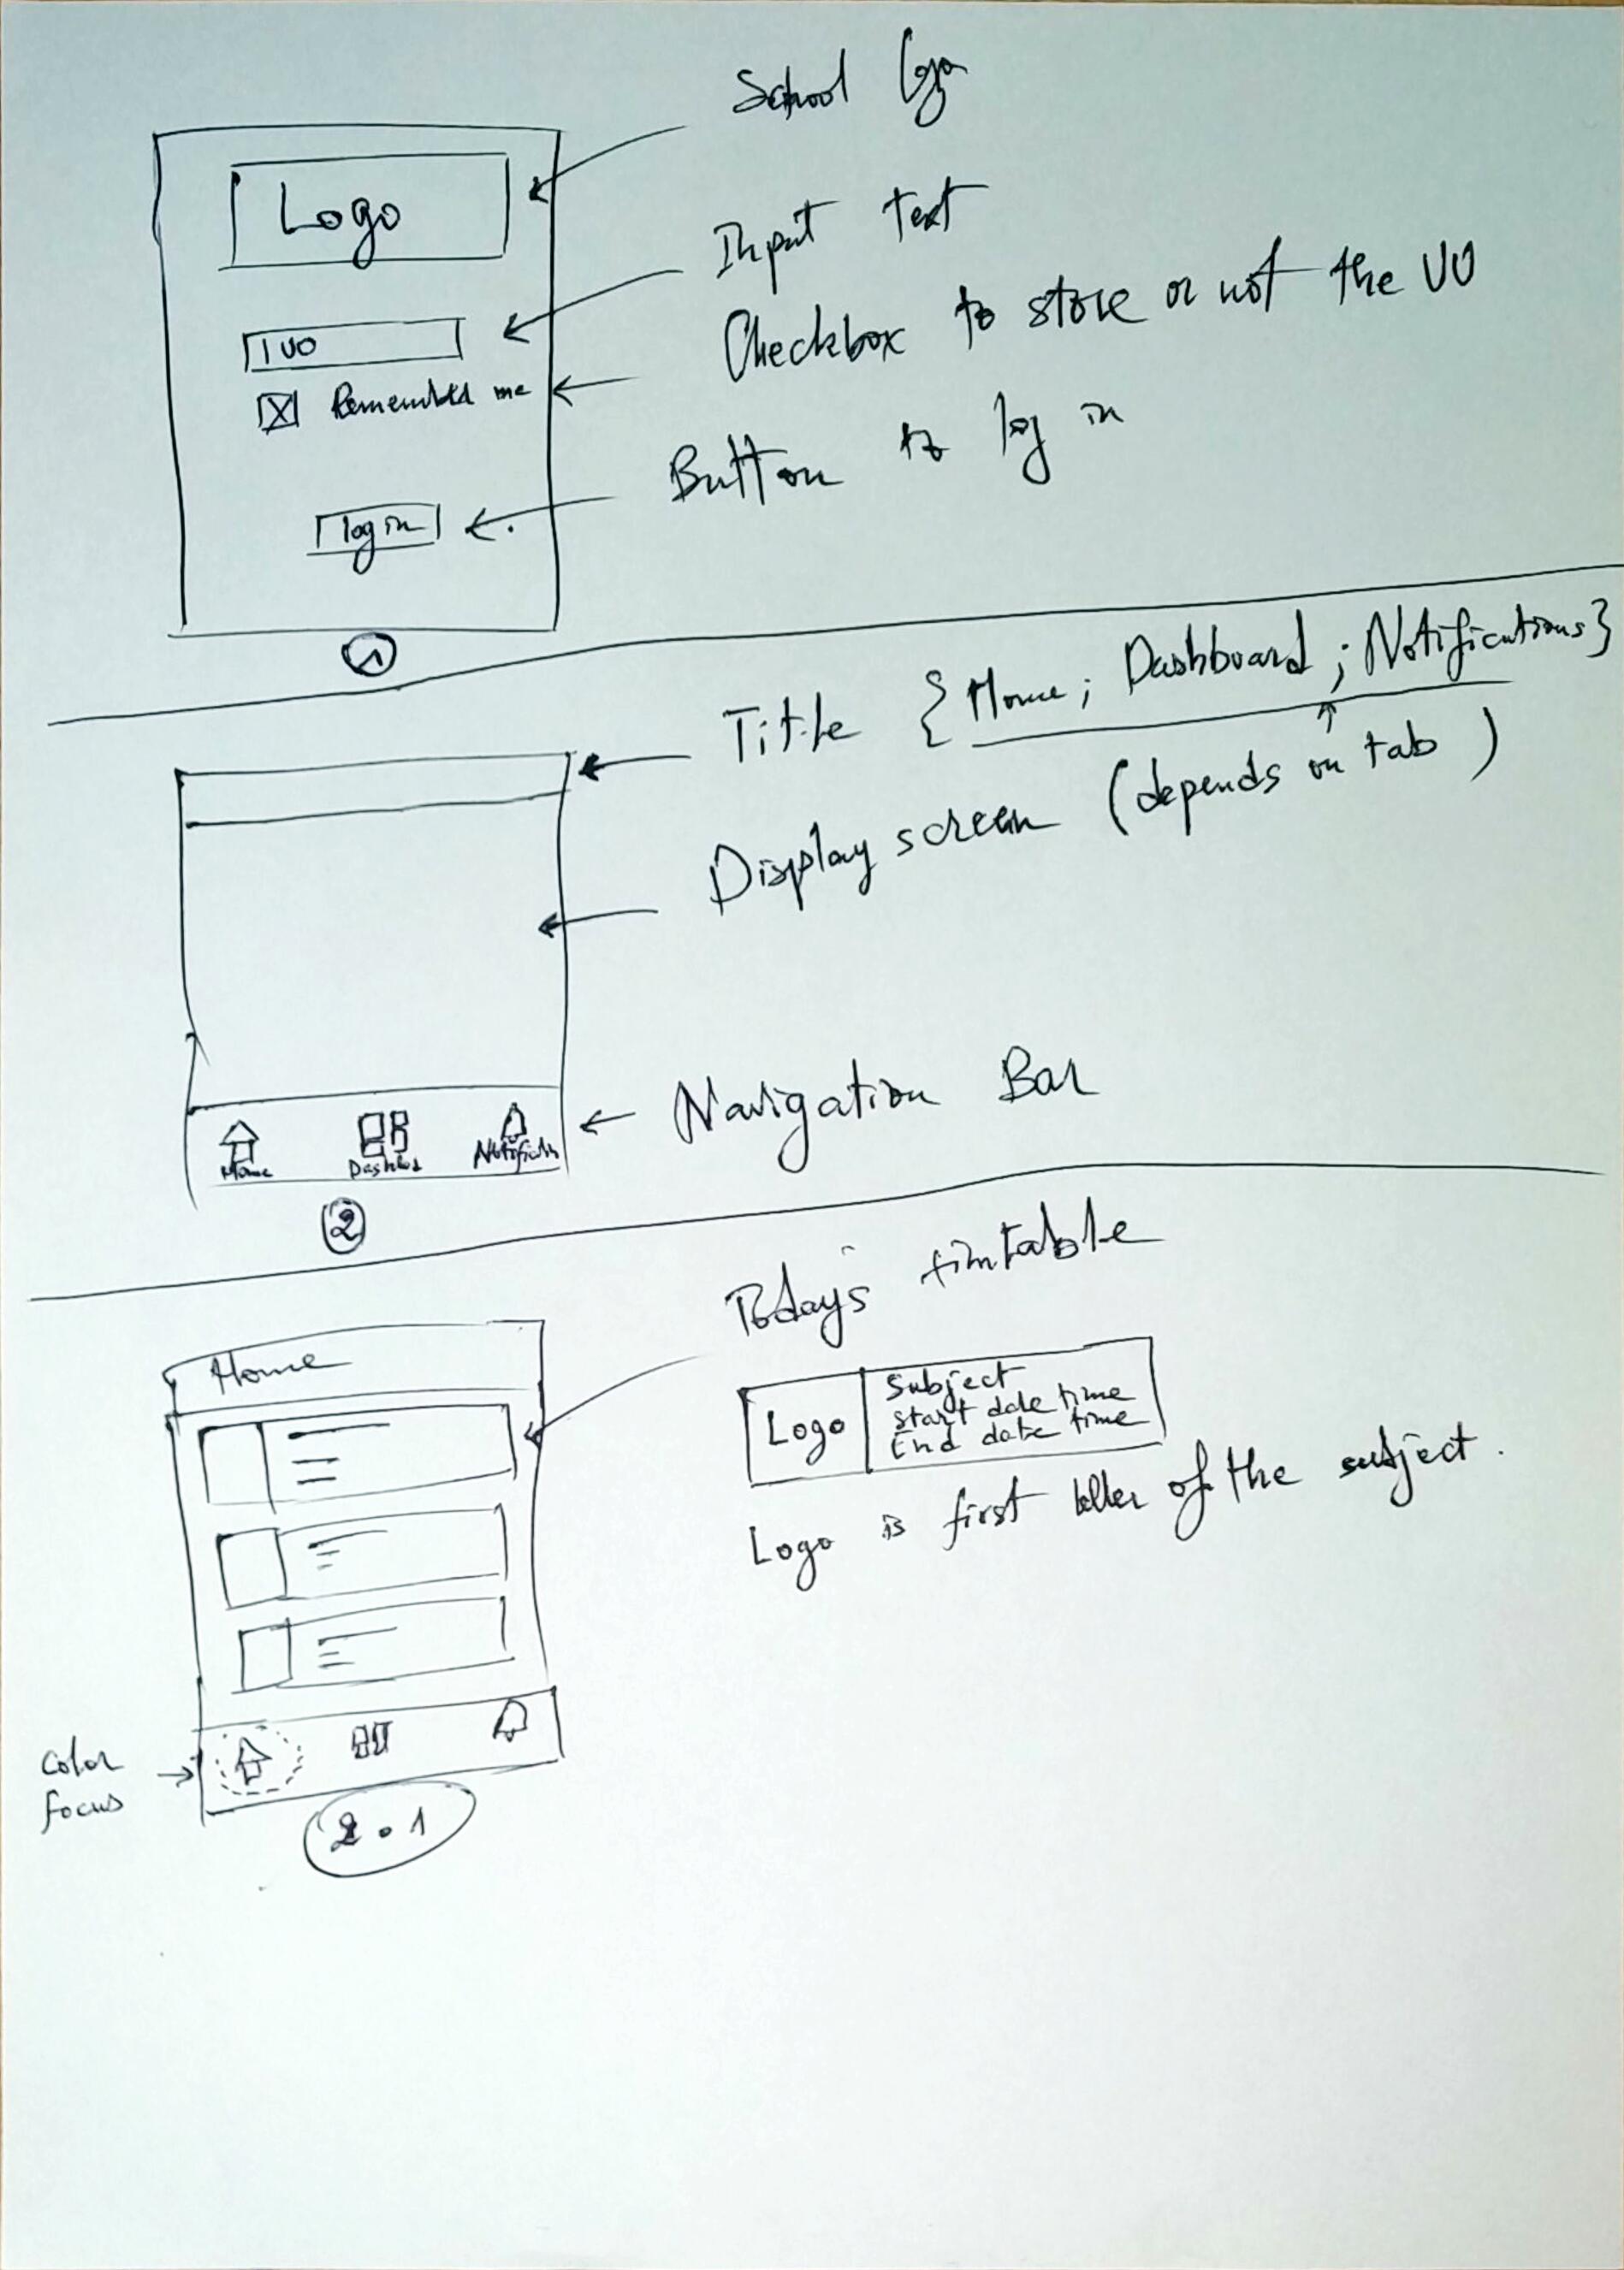 School logo
Logo
Input text
Checkbox to store or not the UU
Remembed me
Button to log in
log in
1
Title { Home ; Dashboard ; Notifications }
Display screen (depends on tab)
Navigation Bar
Home
2
Todays timtable
Home
Logo
Subject
start date time
End date time
Logo is first letter of the subject.
Color
focus
2.1